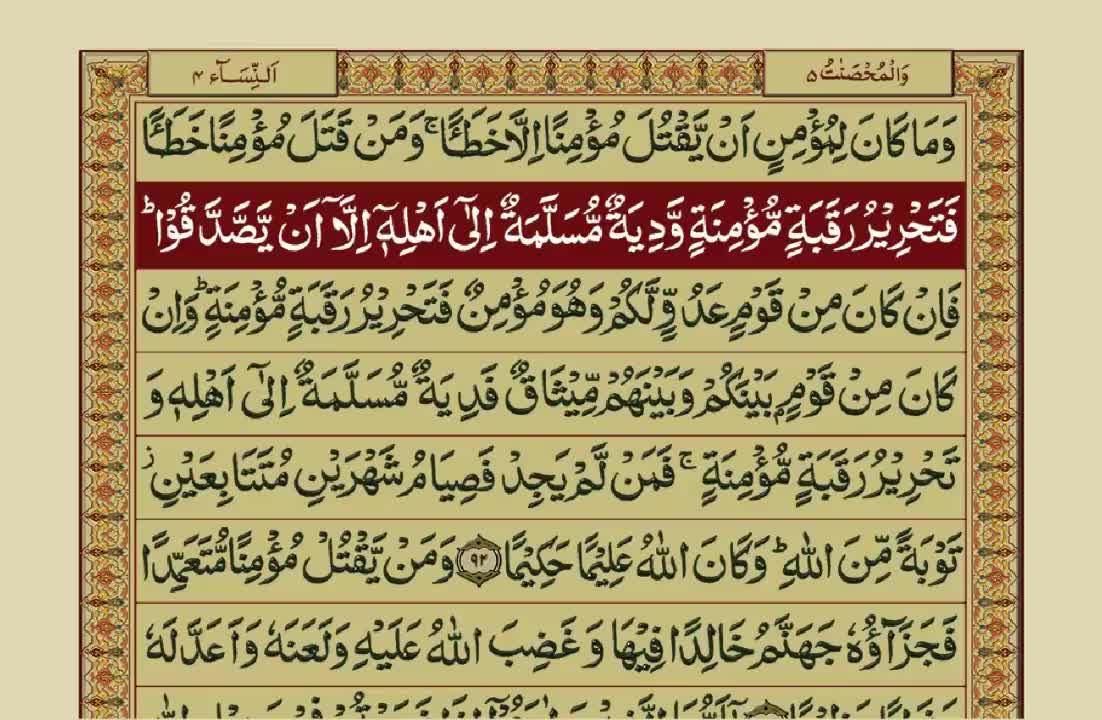 اَلنِّسَآء ۴
وَالْمُحْصَنٰتُ ۵
وَمَا كَانَ لِمُؤْمِنٍ اَنْ يَّقْتُلَ مُؤْمِنًا اِلَّا خَطَـًٔا ۚ وَمَنْ قَتَلَ مُؤْمِنًا خَطَـًٔا
فَتَحْرِيْرُ رَقَبَةٍ مُّؤْمِنَةٍ وَّدِيَةٌ مُّسَلَّمَةٌ اِلٰٓى اَهْلِهٖٓ اِلَّآ اَنْ يَّصَّدَّقُوْا ؕ
فَاِنْ كَانَ مِنْ قَوْمٍ عَدُوٍّ لَّكُمْ وَهُوَ مُؤْمِنٌ فَتَحْرِيْرُ رَقَبَةٍ مُّؤْمِنَةٍ ؕ وَاِنْ
كَانَ مِنْ قَوْمٍۭ بَيْنَكُمْ وَبَيْنَهُمْ مِّيْثَاقٌ فَدِيَةٌ مُّسَلَّمَةٌ اِلٰٓى اَهْلِهٖ وَ
تَحْرِيْرُ رَقَبَةٍ مُّؤْمِنَةٍ ۚ فَمَنْ لَّمْ يَجِدْ فَصِيَامُ شَهْرَيْنِ مُتَتَابِعَيْنِ ز
تَوْبَةً مِّنَ اللّٰهِ ؕ وَكَانَ اللّٰهُ عَلِيْمًا حَكِيْمًا ۹۲ وَمَنْ يَّقْتُلْ مُؤْمِنًا مُّتَعَمِّدًا
فَجَزَآؤُهٗ جَهَنَّمُ خَالِدًا فِيْهَا وَغَضِبَ اللّٰهُ عَلَيْهِ وَلَعَنَهٗ وَاَعَدَّ لَهٗ